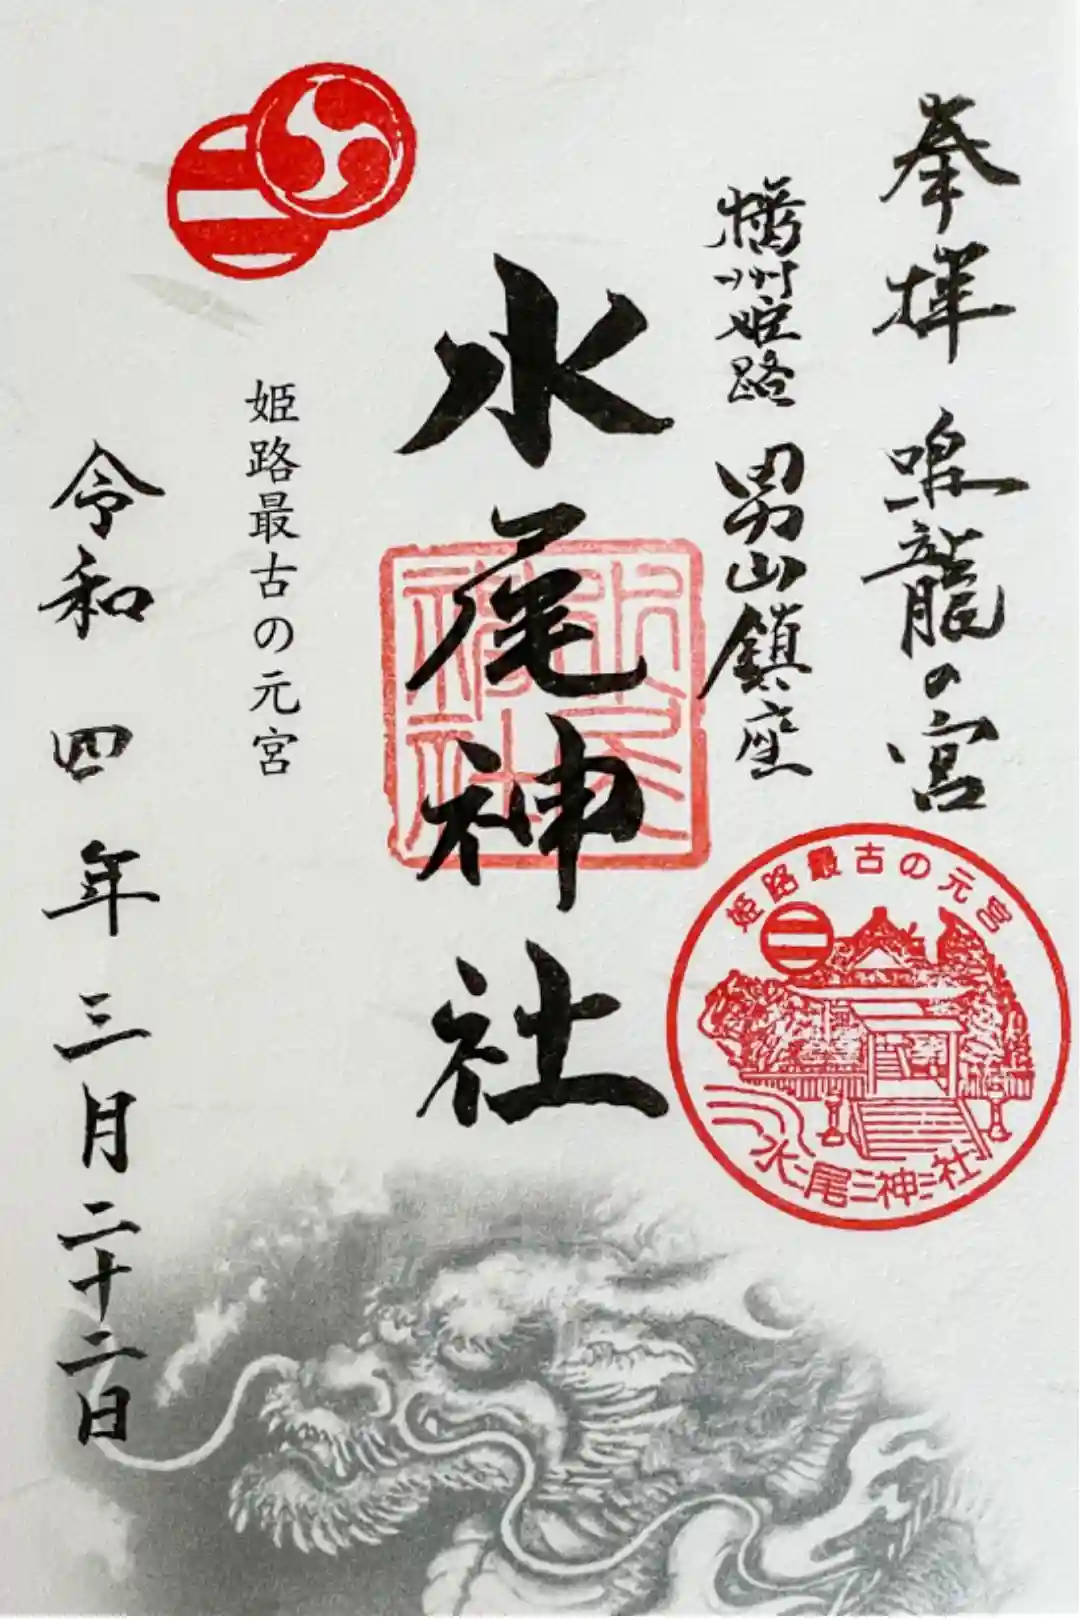 奉拝　鳴龍の宮
播州姫路　男山鎮座
水尾神社
姫路最古の元宮
令和　四年　三月　二十二日
水尾神社
姫路最古の元宮
二
水尾神社